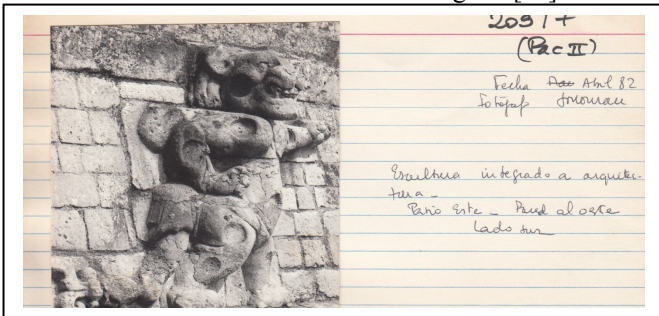 2091+
(Pac II)
Fecha Abril 82
Fotógrafo
Escultura integrado a arquitec-
tura -
Patio Este - Pared al oeste
Lado sur